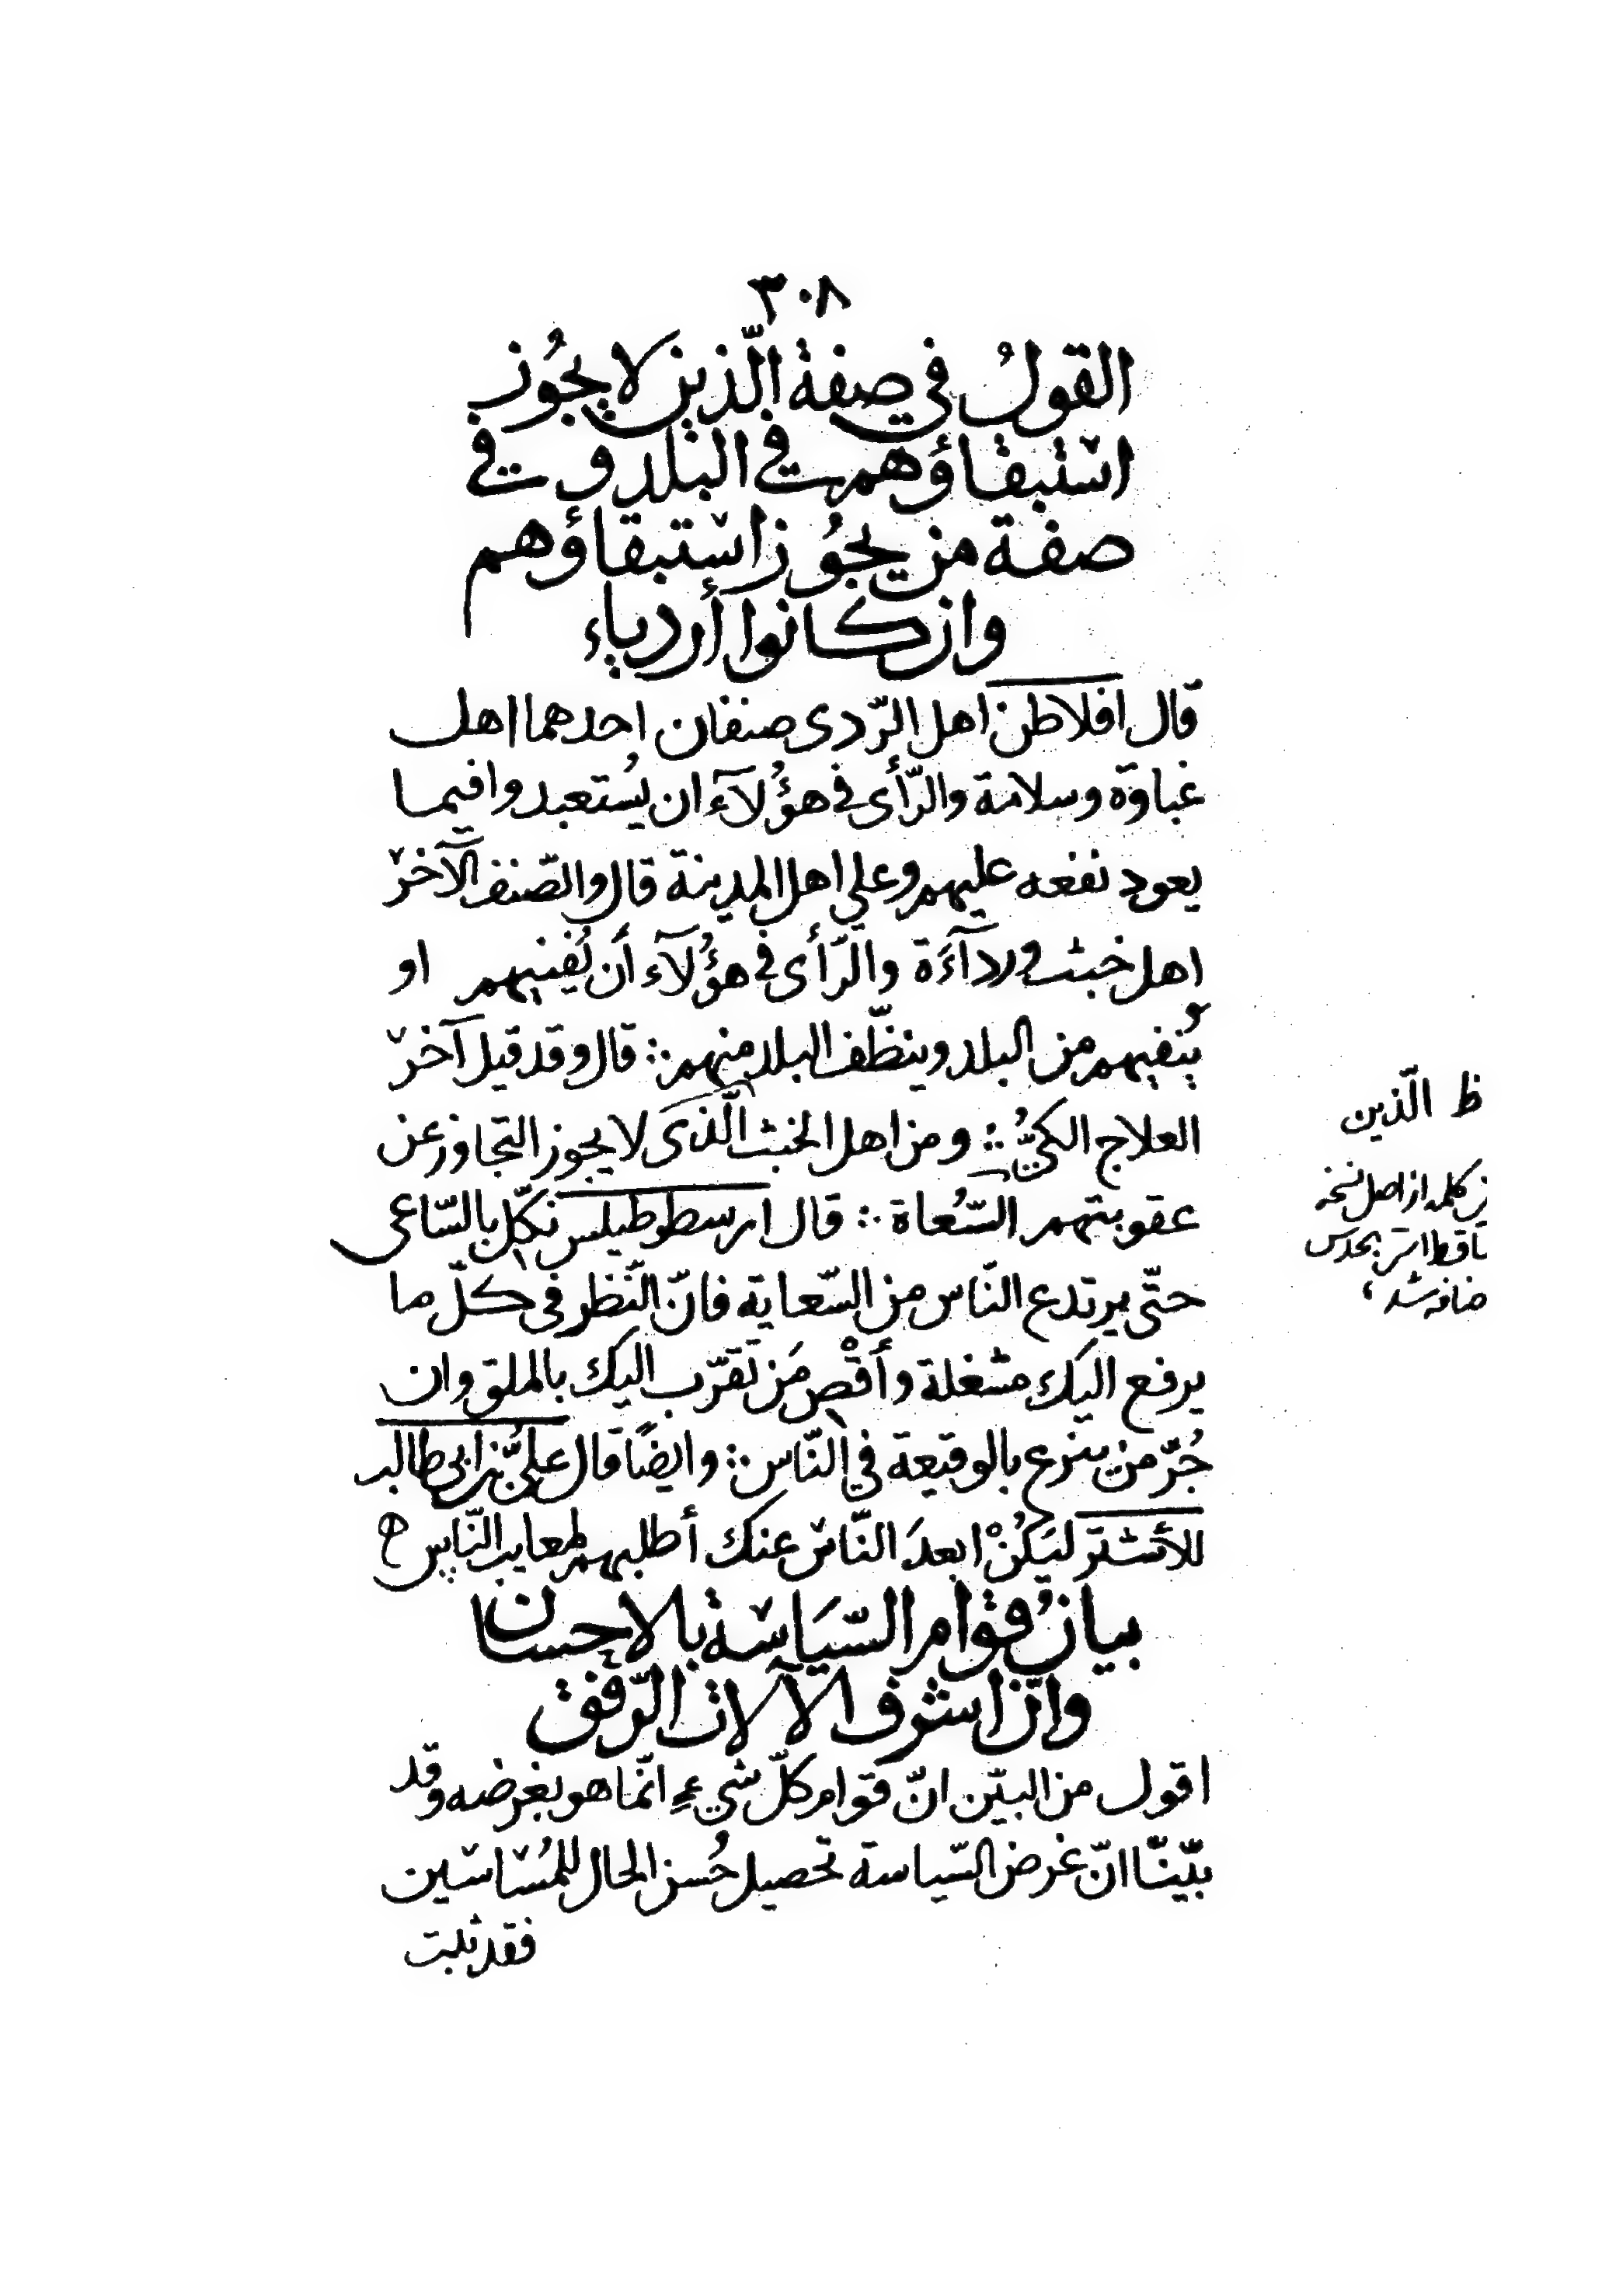 ٣٠٨
القولُ في صفة الّذين لا يجُوز
استبقاؤهم في البلد وفي
صفة من يجُوز استبقاؤهم
وان كانوا أردياء
قال افلاطن اهل الرّدى صنفان احدهما اهل
غباوة وسلامة والرّأى في هؤُلآء ان يُستعبدوا فيما
يعود نفعه عليهم وعلى اهل المدينة قال والصّنف الآخر
اهل خبث ورداءَة والرّأى في هؤُلآء أن يُفنيهم او
يُنفيهم من البلد وينظّف البلد منهم ∴ قال وقد قيل آخر
العلاج الكيُّ ∴ ومن اهل الخبث الّذى لا يجوز التجاوز عن
عقوبتهم السُّعاة ∴ قال ارسطوطيلس نكّل بالسّاعى
حتّى يرتدع النّاس من السّعاية فانّ النّظر فى كلّ ما
يرفع اليك مشغلة وأقْصِ مَن تقرّب اليك بالملق وان
جُرّ من ينزع بالوقيعة في النّاس ∴ وايضًا قال علىُّ بن ابى طالب
للأشتر ليَكُنْ ابعدَ النّاس عنك أطلبهم لمعايب النّاس
بيانُ قوام السّيَاسة بالاحسان
وانّ اشرف الآلات الرّفق
اقول من البيّن انّ قوام كلّ شيءٍ انّما هو بغرضه وقد
بيّنّا انّ غرض السّياسة تحصيل حُسن الحال للمُساسين
فقد ثبت
ظ الّذين
كلمه از اصل نسخه
بحدس
ضافه شد،